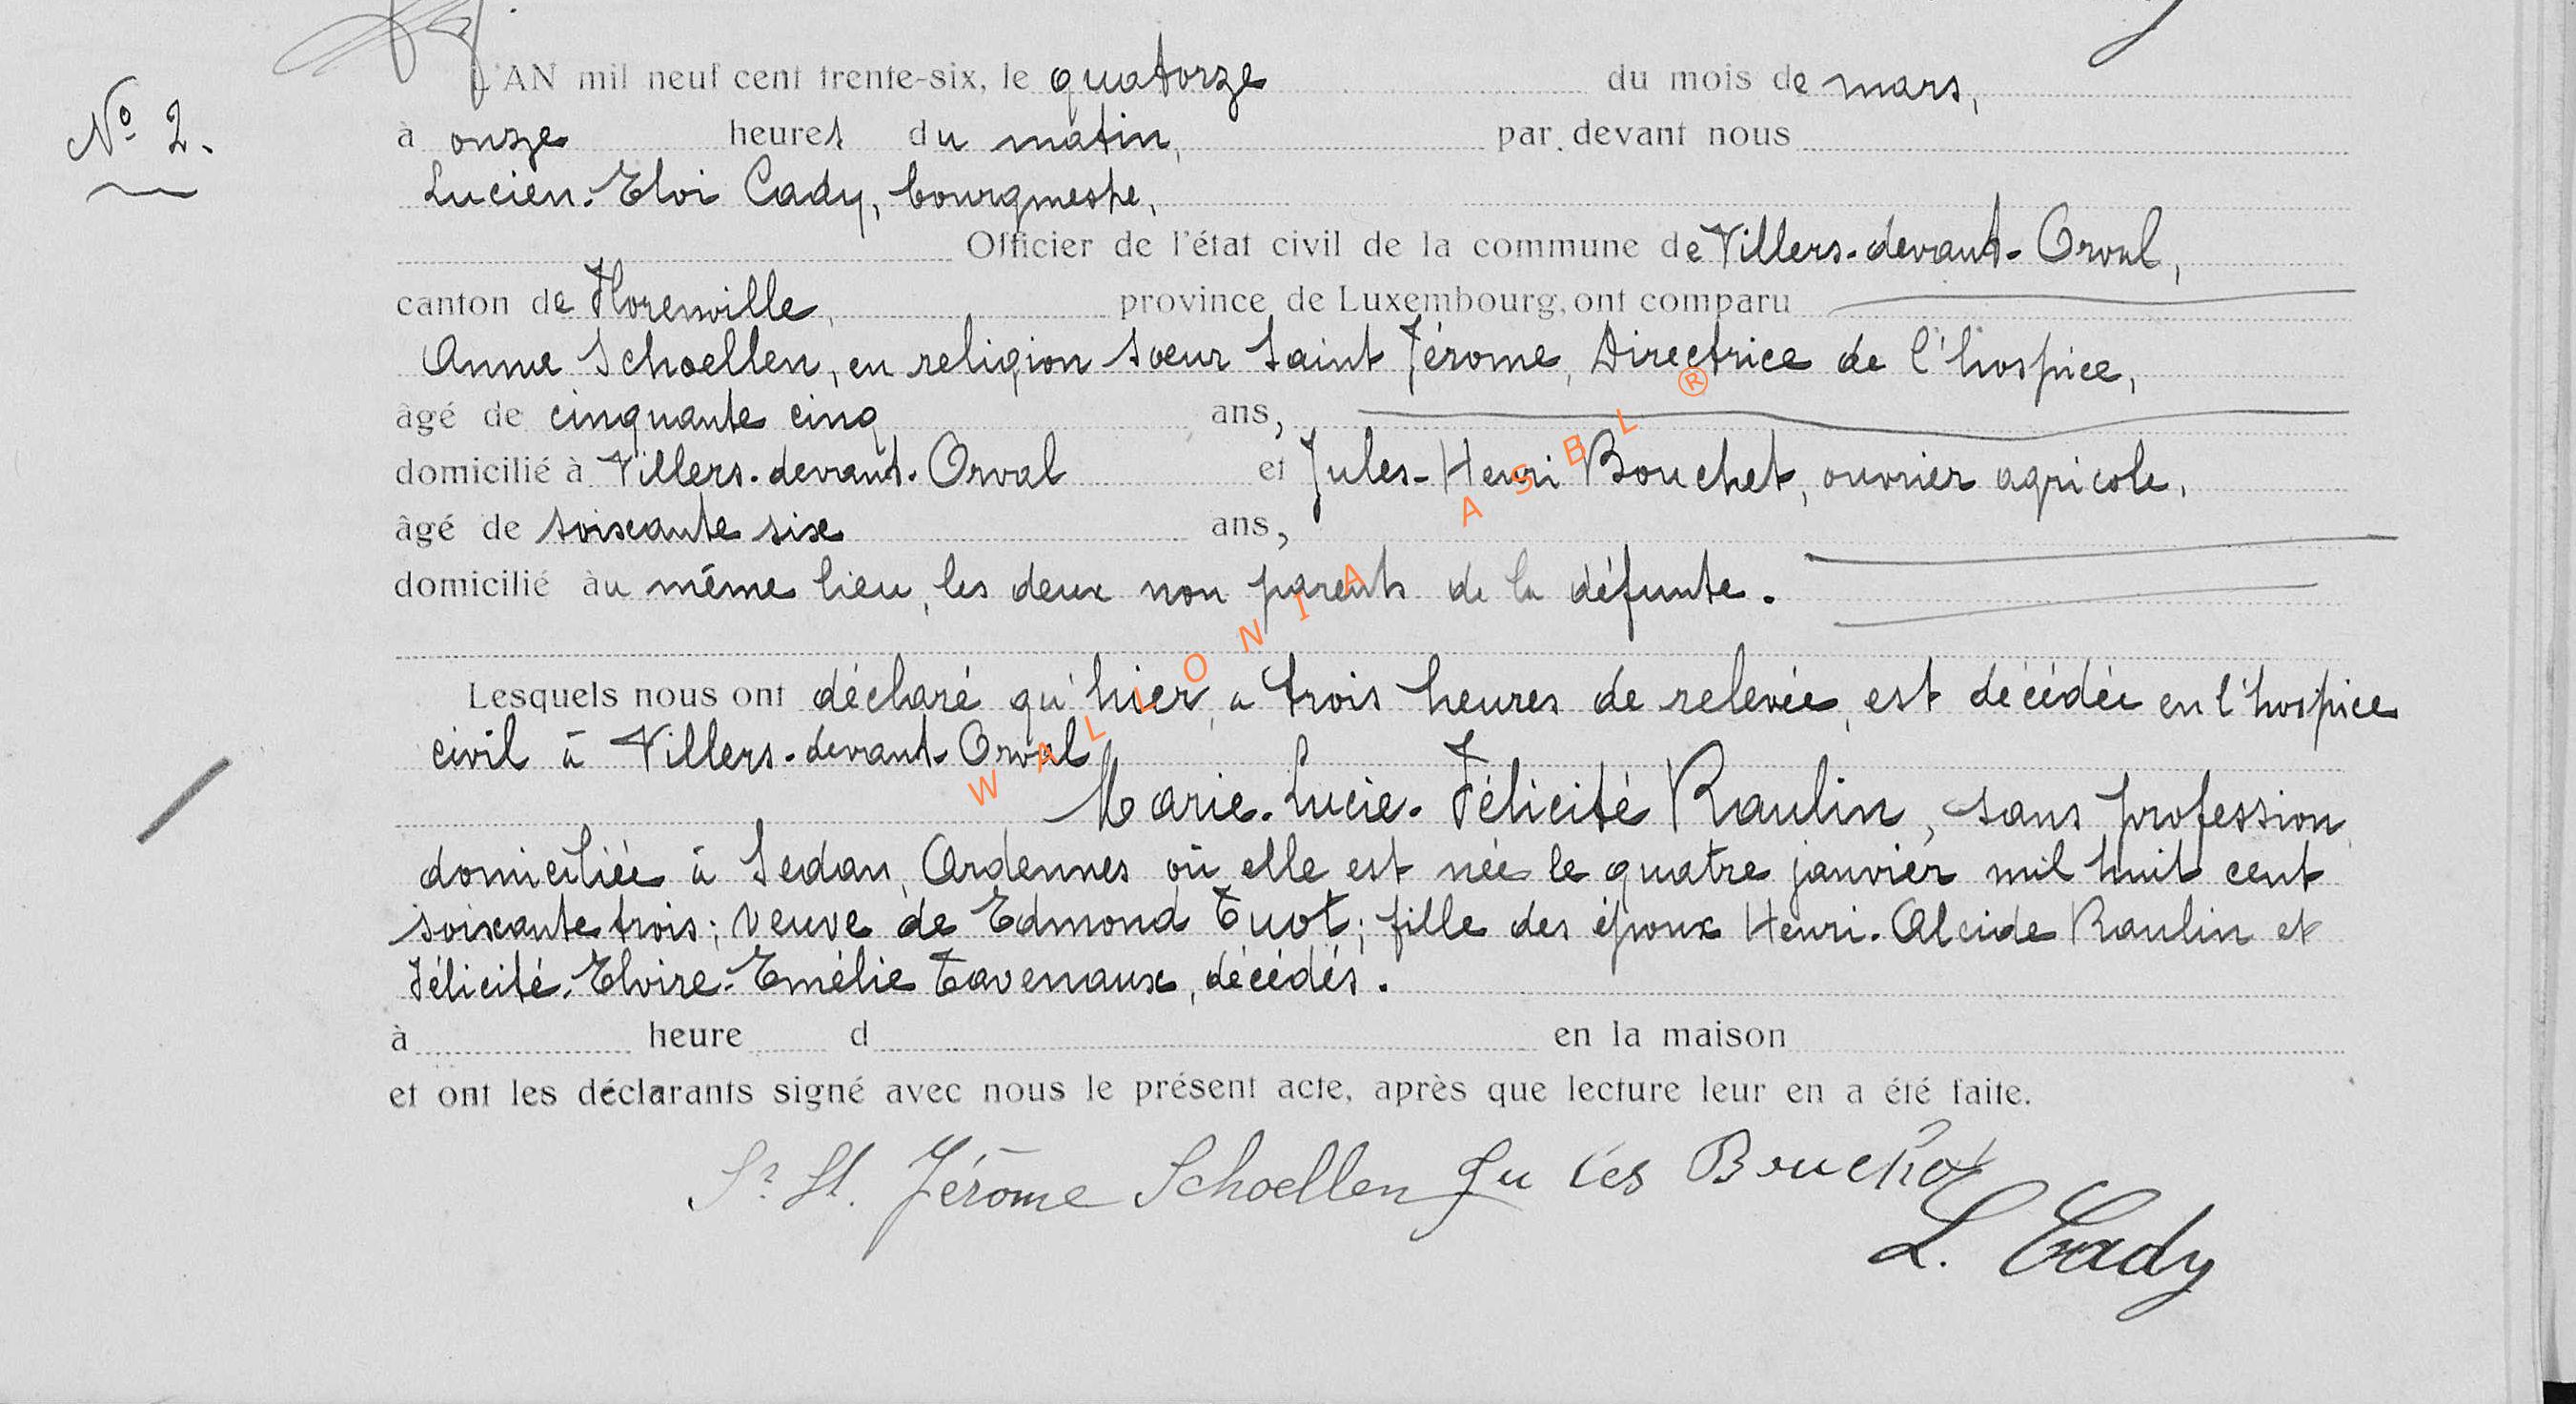 L'AN mil neuf cent trente-six, le quatorze du mois de mars,
N° 2. à onze heures du matin, par devant nous
Lucien-Eloi Cady, bourgmestre,
Officier de l'état civil de la commune de Villers-devant-Orval,
canton de Florenville, province de Luxembourg, ont comparu
Anna Schoellen, en religion soeur Saint Jérome, Directrice de l'hospice,
âgé de cinquante cinq ans,
domicilié à Villers-devant-Orval et Jules-Henri Bouchet, ouvrier agricole,
âgé de soixante six ans,
domicilié au même lieu, les deux non parents de la défunte.
Lesquels nous ont déclaré qu'hier, à trois heures de relevée, est décédée en l'hospice
civil à Villers-devant-Orval
Marie-Lucie-Félicité Raulin, sans profession,
domiciliée à Sedan, Ardennes où elle est née le quatre janvier mil huit cent
soixante trois; veuve de Edmond Tuot; fille des époux Henri-Alcide Raulin et
Félicité-Elvire-Emélie Tavenaux, décédés.
à heure d en la maison
et ont les déclarants signé avec nous le présent acte, après que lecture leur en a été faite.
Sr St. Jérôme Schoellen Ju les Bouchet
L. Cady
WALLONIA ASBL ®